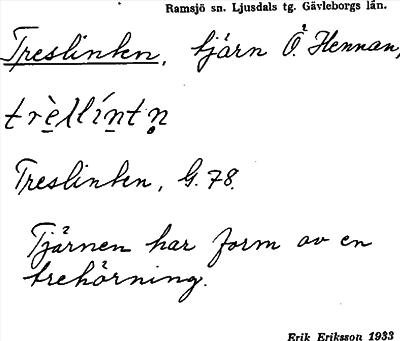 Ramsjö sn. Ljusdals tg. Gävleborgs län.
Treslinten, tjärn Ö. Hennan,
trèllíntn̥
Treslinten, G. 78.
Tjärnen har form av en
trehörning.
Erik Eriksson 1933